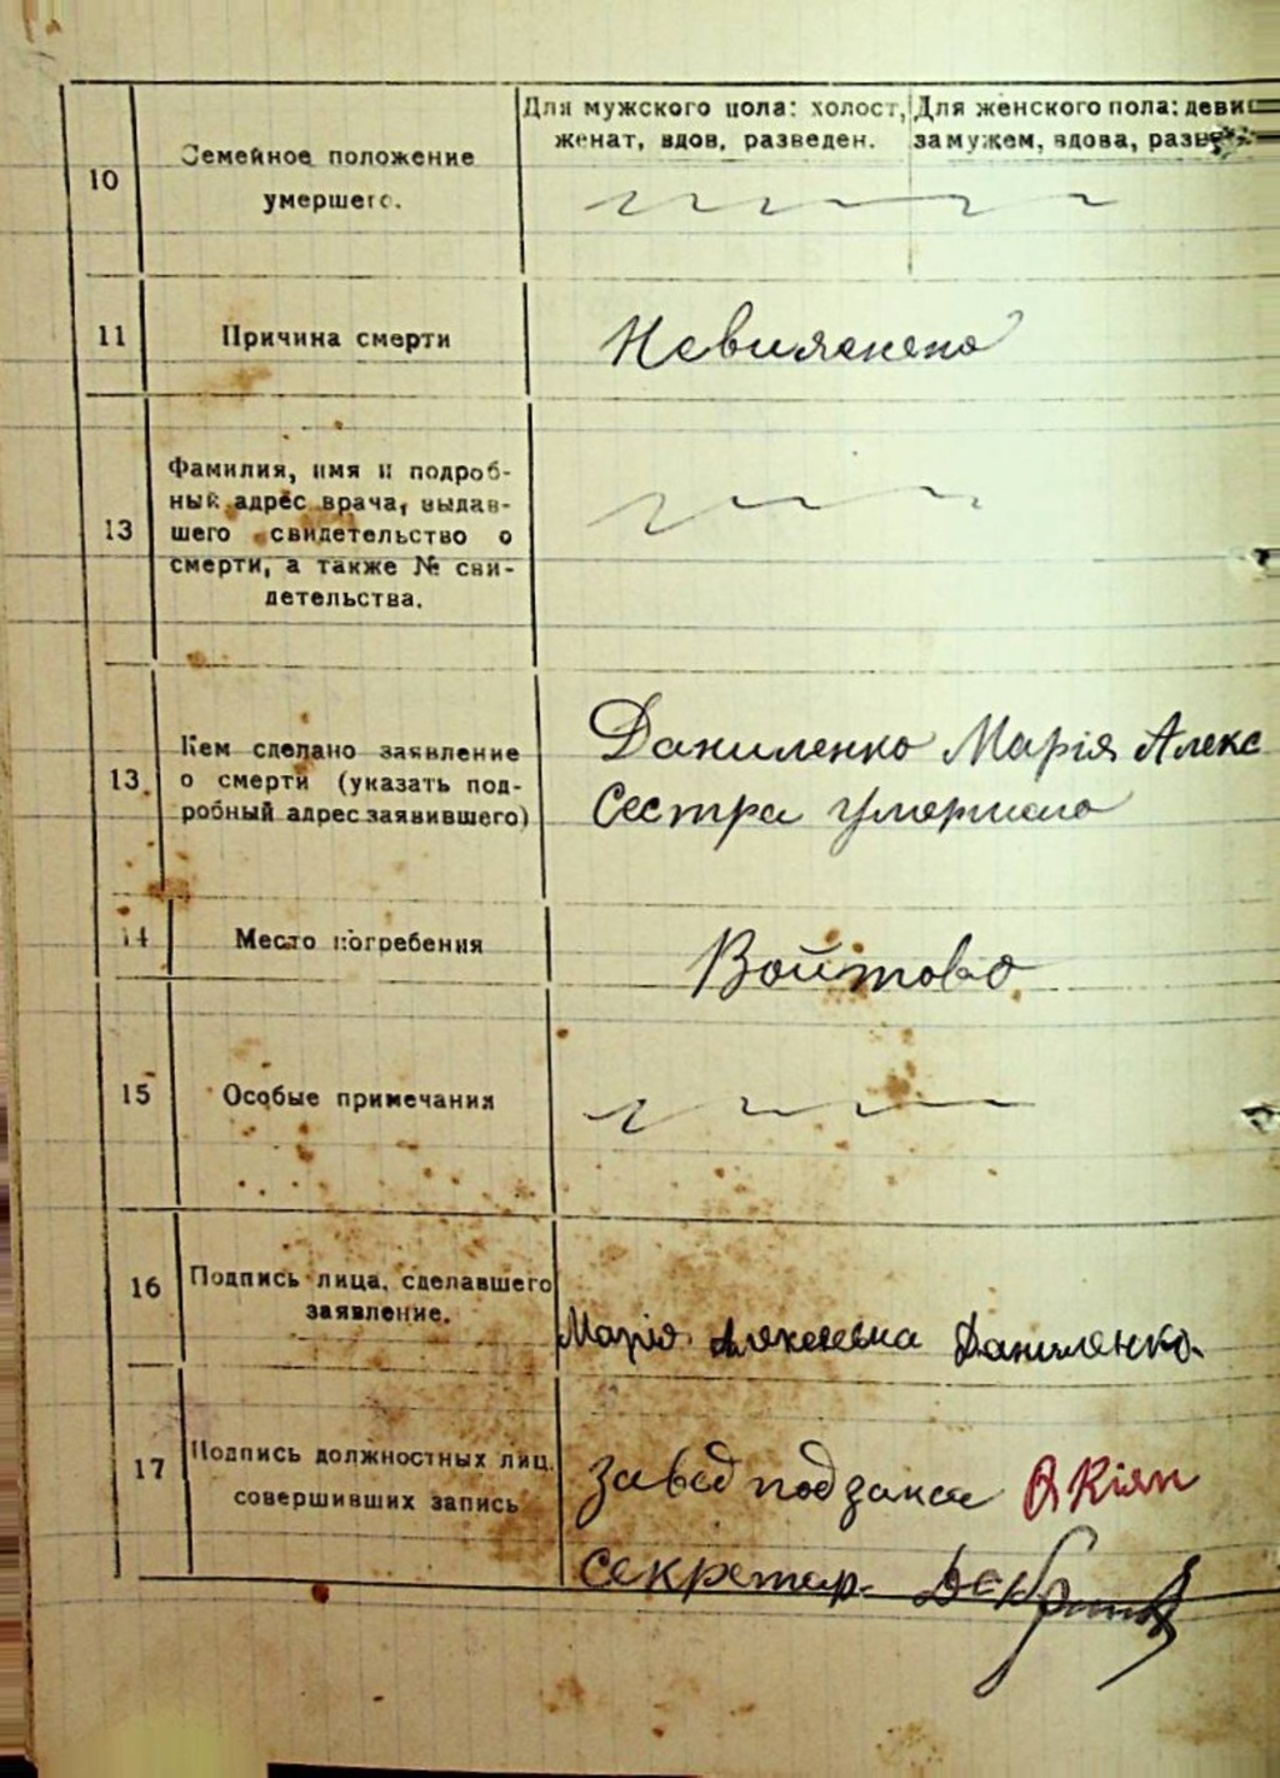 Для мужского пола: холост, женат, вдов, разведен.
Для женского пола: деви замужем, вдова, разве
10
Семейное положение
умершего.
11
Причина смерти
Невияснено
13
Фамилия, имя и подроб-
ный адрес врача, выдав-
шего свидетельство о
смерти, а также № сви-
детельства.
13.
Кем сделано заявление
о смерти (указать под-
робный адрес заявившего)
Даниленко Марія Алекс
Сестра умершого
14
Место погребения
Войтово
15
Особые примечания
16
Подпись лица, сделавшего
заявление.
Марія Даниленко.
17
Подпись должностных лиц,
совершивших запись
Завед под загса Кіян
Секретар